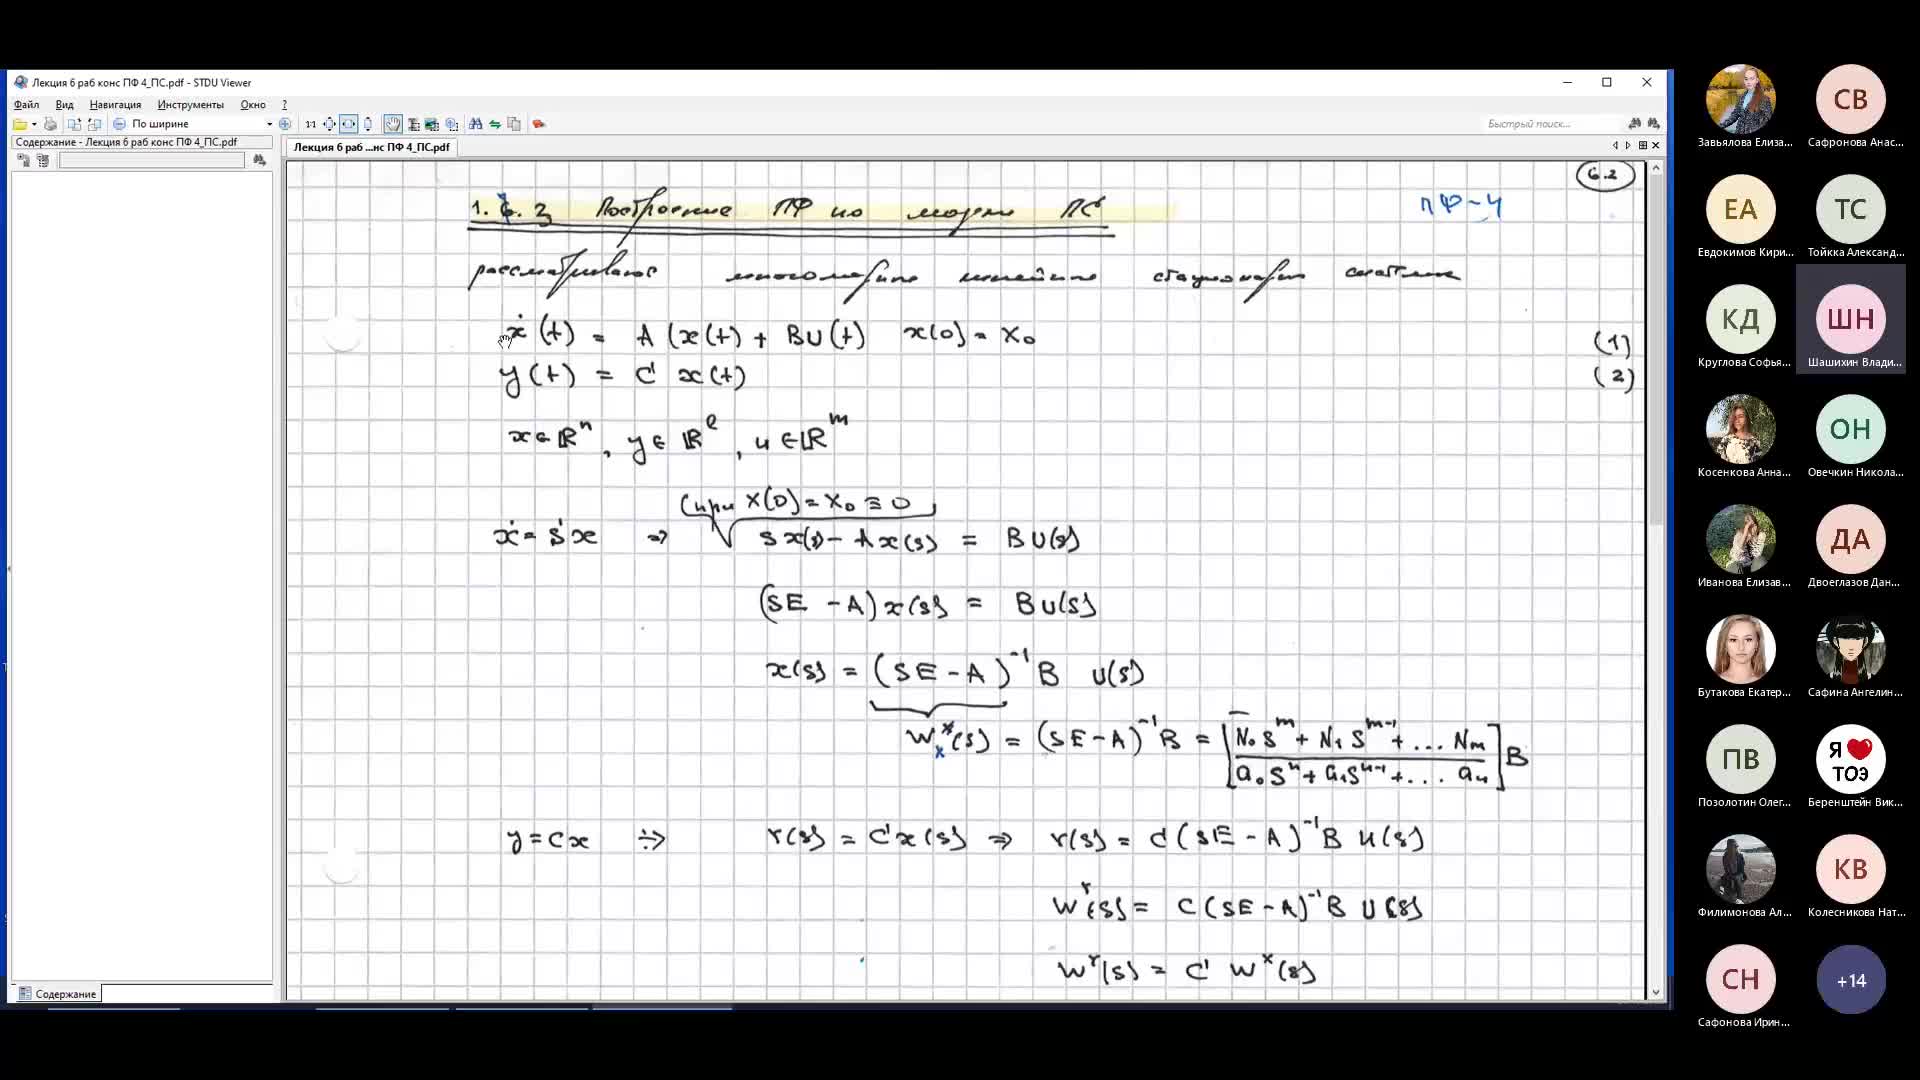 Лекция 6 раб конс ПФ 4_ПС.pdf - STDU Viewer
Файл Вид Навигация Инструменты Окно ?
По ширине
1:1
Быстрый поиск...
Содержание - Лекция 6 раб конс ПФ 4_ПС.pdf
Лекция 6 раб ...нс ПФ 4_ПС.pdf
6.2
1.6.2 Построение ПФ по модели ПС
ПФ-4
рассматриваются многомерные линейные стационарные системы
ẋ(t) = A(x(t) + BU(t) x(0) = x₀ (1)
y(t) = C x(t) (2)
x∈ℝⁿ, y∈ℝˡ, u∈ℝᵐ
(при x(0) = x₀ ≡ 0
ẋ = sx ⇒ sx(s) - Ax(s) = BU(s)
(SE - A)x(s) = BU(s)
x(s) = (SE - A)⁻¹B U(s)
Wˣₓ(s) = (SE - A)⁻¹B = [N₀Sᵐ + N₁Sᵐ⁻¹ + ... Nₘ / a₀Sⁿ + a₁Sⁿ⁻¹ + ... aₙ] B
y = cx ÷> r(s) = Cx(s) ⇒ r(s) = C(SE - A)⁻¹B U(s)
Wʳ(s) = C(SE - A)⁻¹B U(s)
Wʳ(s) = C Wˣ(s)
Содержание
Завьялова Елиза...
СВ
Сафронова Анас...
ЕА
Евдокимов Кири...
ТС
Тойкка Александ...
КД
Круглова Софья...
ШН
Шашихин Влади...
Косенкова Анна...
ОН
Овечкин Никола...
Иванова Елизав...
ДА
Двоеглазов Дан...
Бутакова Екатер...
Сафина Ангелин...
ПВ
Позолотин Олег...
Я ❤ ТОЭ
Беренштейн Вик...
Филимонова Ал...
КВ
Колесникова Нат...
СН
Сафонова Ирин...
+14